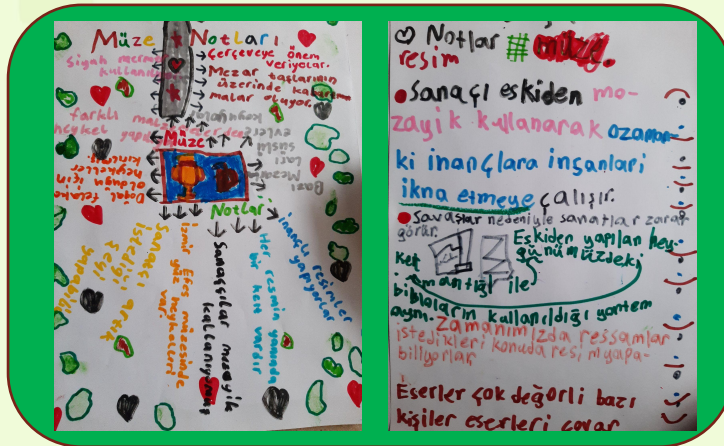 Müze Notları
Siyah mermer
kullanılı
Çerçeveye önem
veriyorlar.
Mezar taşlarının
üzerinde kabartma
malar oluyor.
farklı malzemelerden
heykel yapılı
Müze
Notları
Bazı
Mezarın
Lahci
süslü
evler
koyuyorlar
Doğal felaket
olduğu için
heykeller
kırılan
Sanatçı artık
istediği
şeyi
yapabilir
İzmir Efes müzesinde
yüz heykelleri
var.
Sanatçılar mozayik
kullanıyormuş
Her resmin yanında
bir kett vardır
inançlı resimler
yapıyorlar
Notlar # müze.
resim
Sanaçı eskiden mo-
zayik kullanarak ozaman-
ki inançlara insanları
ikna etmeye çalışır.
Savaşlar nedeniyle sanatlar zarar
görür.
Eskiden yapılan hey-
kel
günümüzdeki
mantığı ile
bibloların kullanıldığı yöntem
aynı.
Zamanımızda ressamlar
istedikleri konuda resim yapa-
biliyorlar
Eserler çok değerli bazı
kişiler eserleri çovar